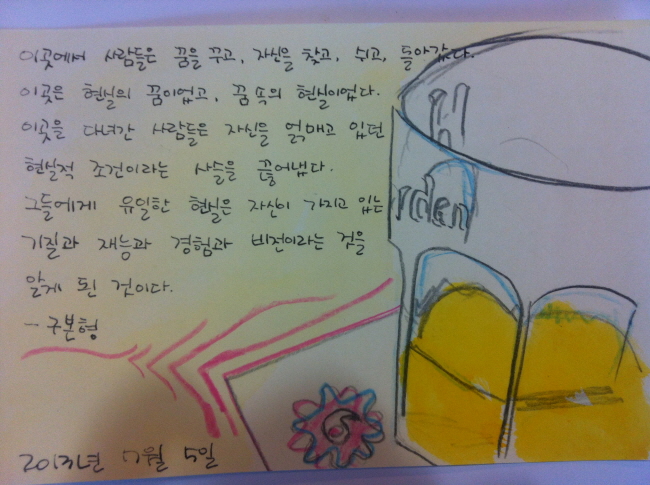 이곳에서 사람들은 꿈을 꾸고, 자신을 찾고, 쉬고, 돌아갔다.
이곳은 현실의 꿈이었고, 꿈 속의 현실이었다.
이곳을 다녀간 사람들은 자신을 얽매고 있던
현실적 조건이라는 사슬을 끊어냈다.
그들에게 유일한 현실은 자신이 가지고 있는
기질과 재능과 경험과 비전이라는 것을
알게 된 것이다.
- 구본형
rden
2013년 7월 5일